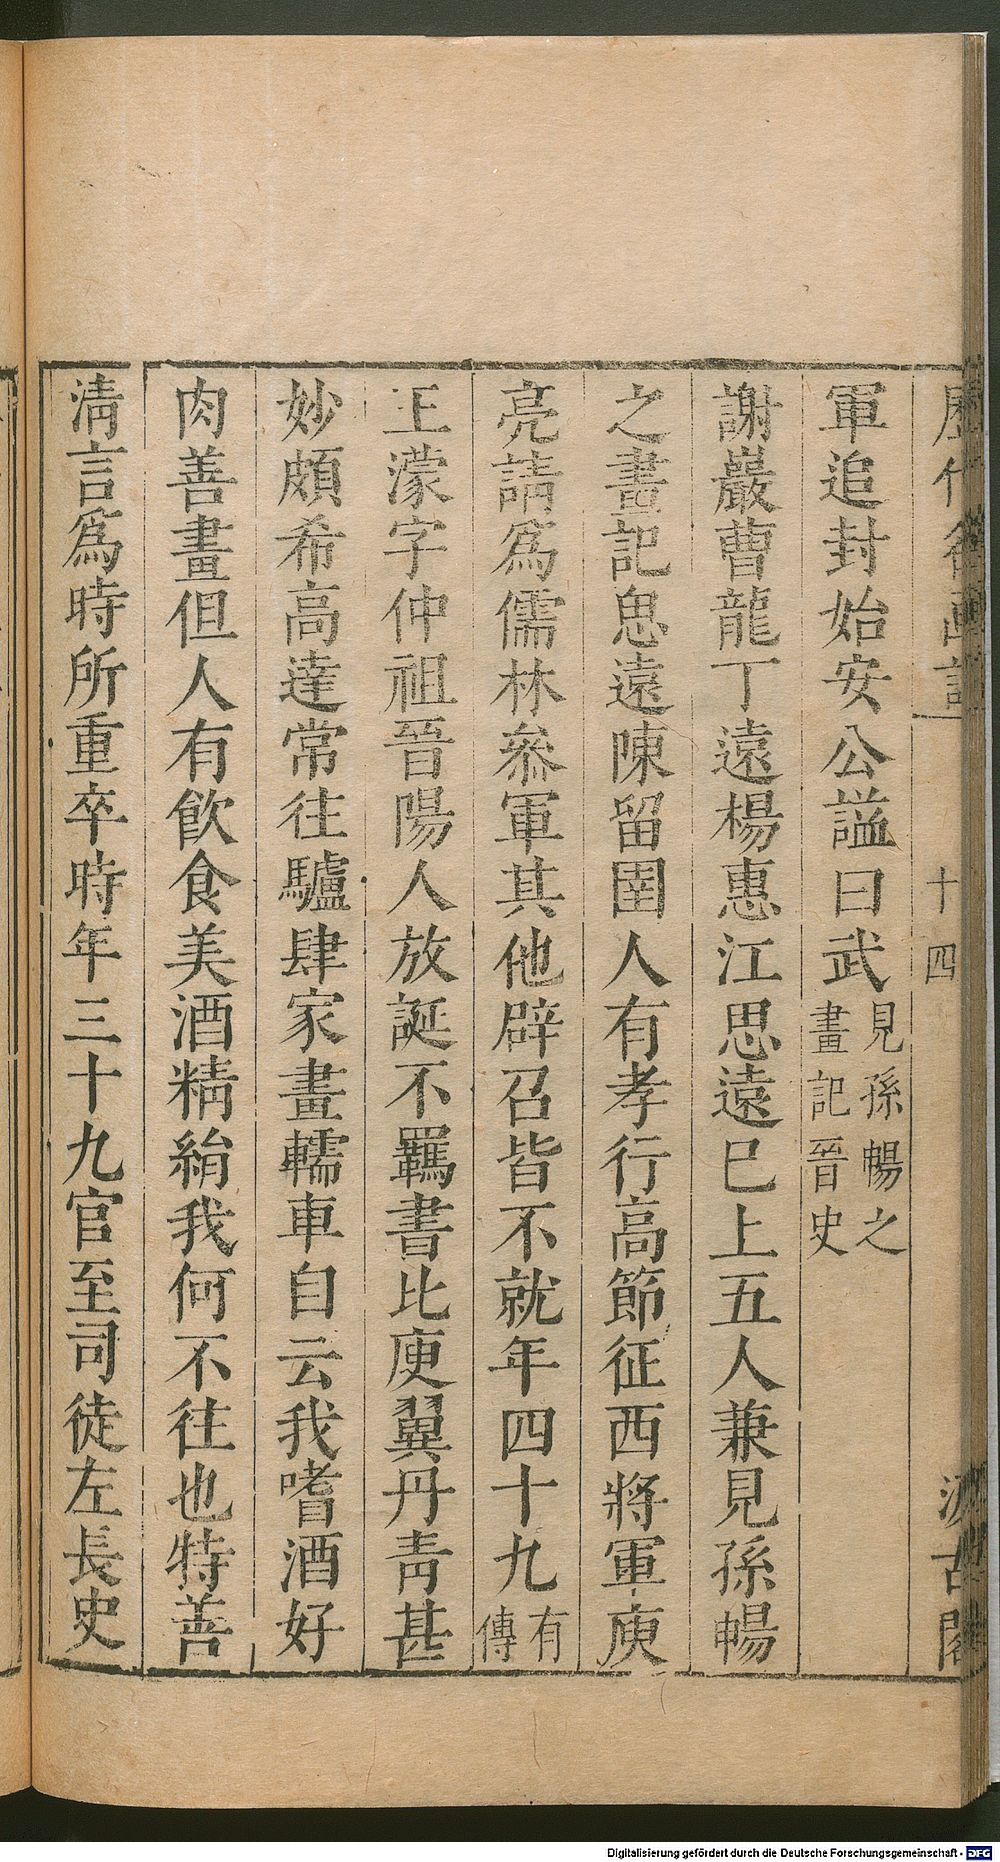 歷代名畫記 十四 汲古閣
軍追封始安公謚曰武見孫暢之畫記晉史
謝巖曹龍丁遠楊惠江思遠巳上五人兼見孫暢
之畫記思遠陳留圉人有孝行高節征西將軍庾
亮請爲儒林叅軍其他辟召皆不就年四十九有傳
王濛字仲祖晉陽人放誕不羈書比庾翼丹靑甚
妙頗希高達常往驢肆家畫轜車自云我嗜酒好
肉善畫但人有飲食美酒精絹我何不往也特善
淸言爲時所重卒時年三十九官至司徒左長史
Digitalisierung gefördert durch die Deutsche Forschungsgemeinschaft - DFG